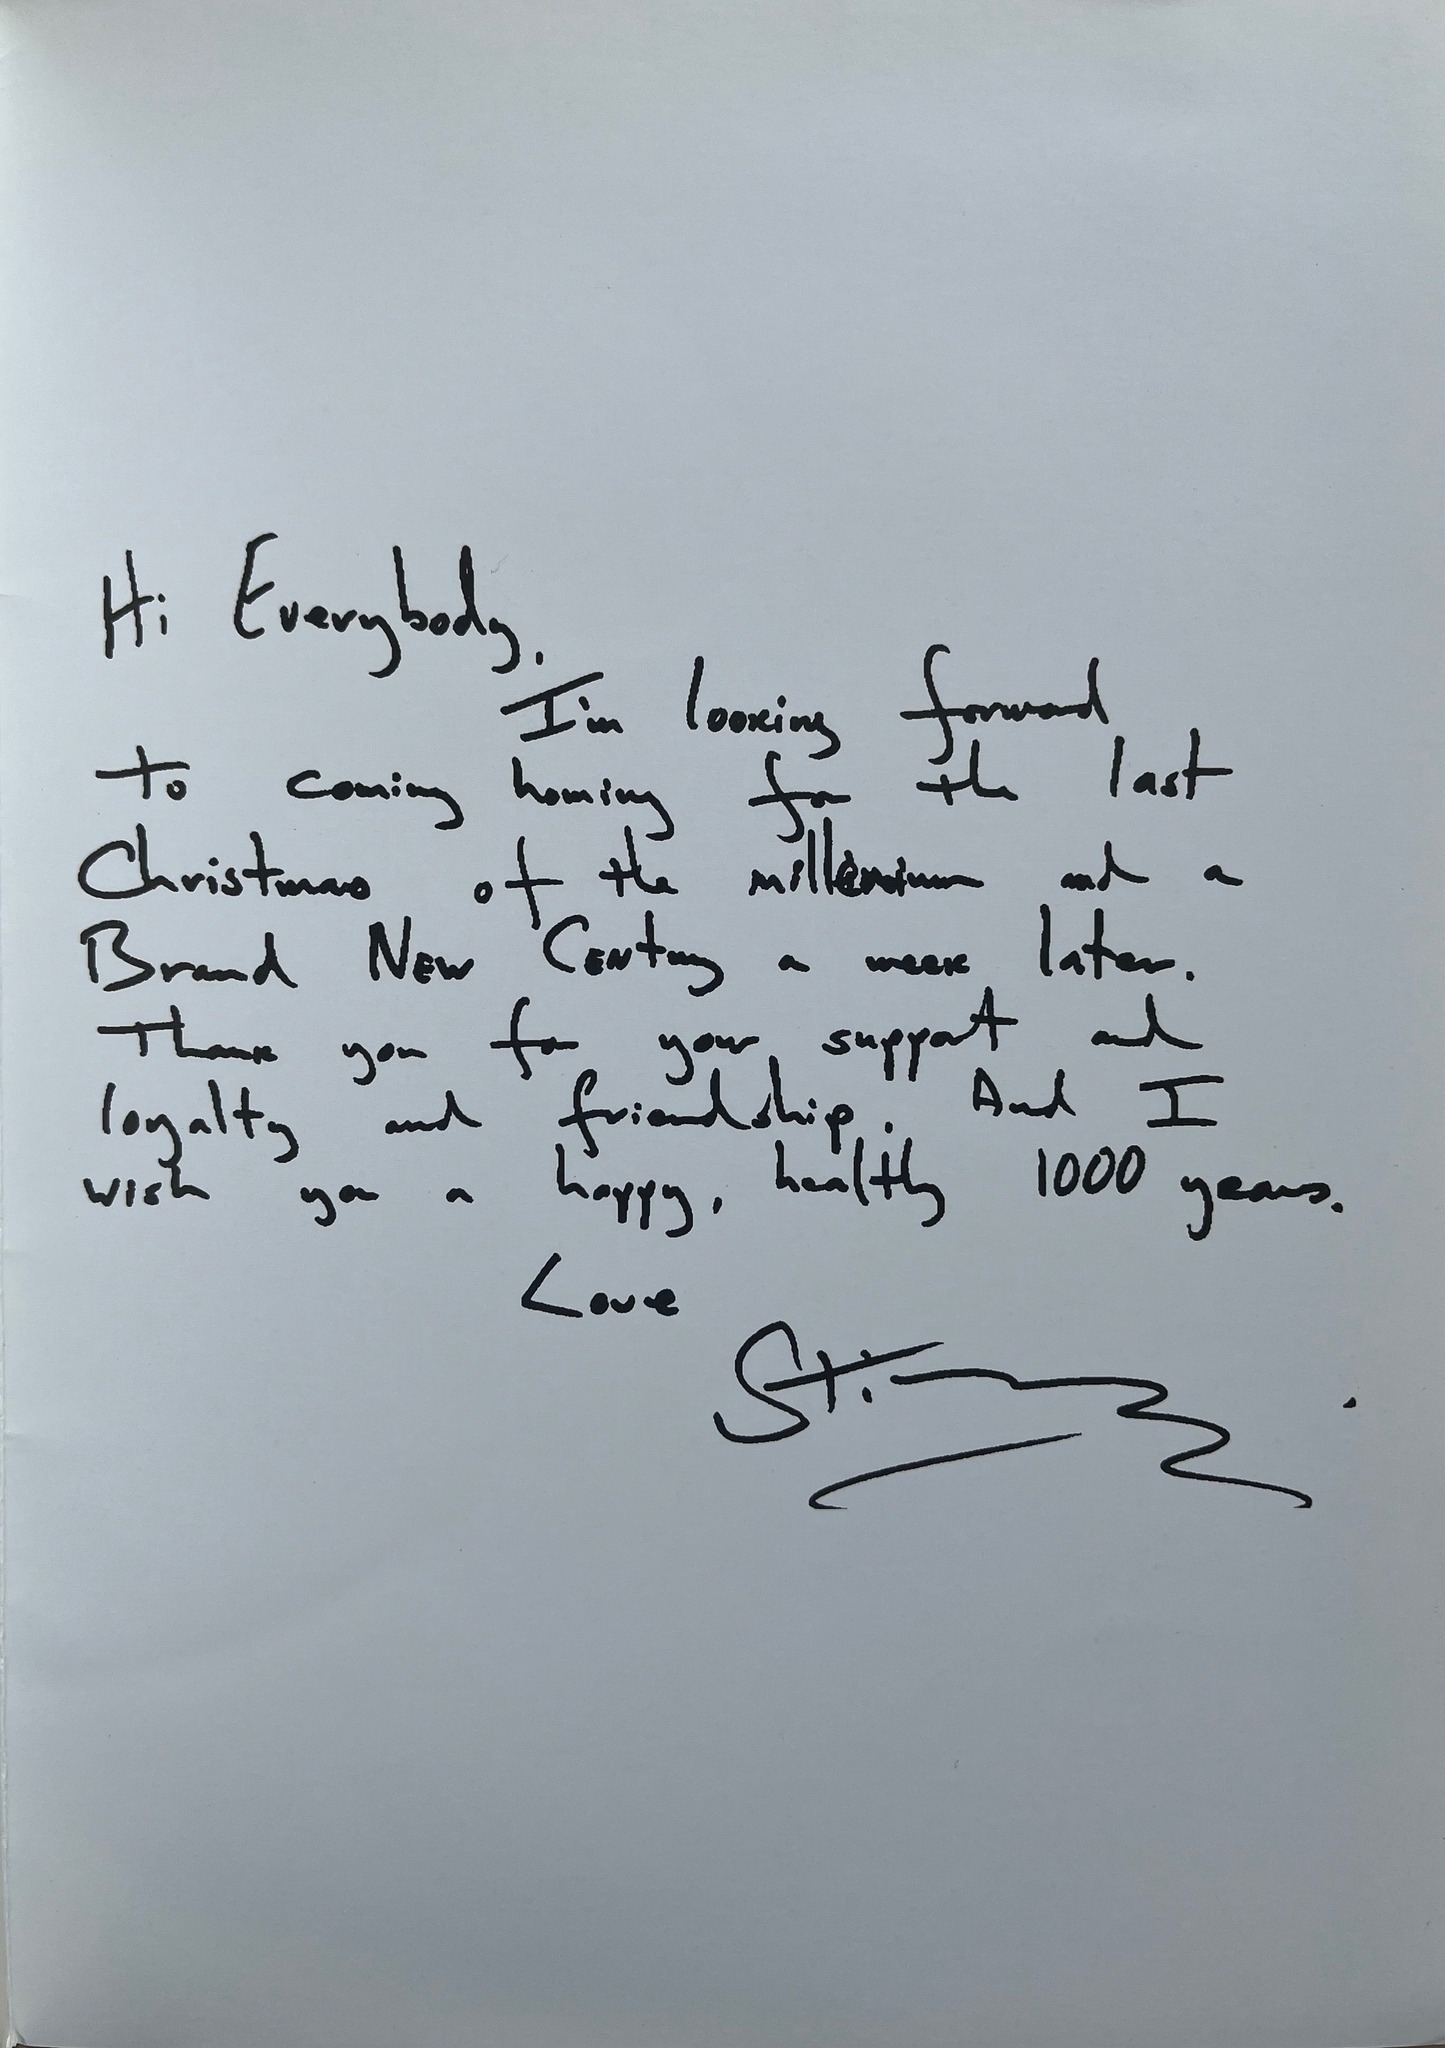 Hi Everybody,
I'm looking forward
to coming homing for the last
Christmas of the millenium and a
Brand New Century a week later.
Thank you for your support and
loyalty and friendship. And I
wish you a happy, healthy 1000 years.
Love
Sting